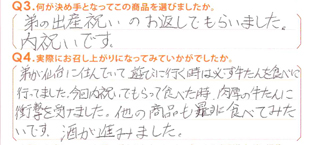 Q3.何が決め手となってこの商品を選びましたか。
弟の出産祝いのお返してもらいました。
内祝いです。
Q4.実際にお召し上がりになってみていかがでしたか。
弟が仙台に住んでいて遊びに行く時は必ず牛たんを食べに
行ってました。今回内祝いでもらって食べた時、肉厚の牛たんに
衝撃を受けました。他の商品も是非食べてみた
いです。酒が進みました。